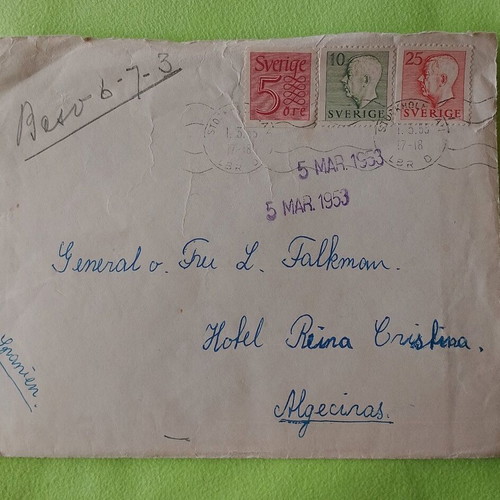 Besv 6-7-3
Sverige
5
öre
10
SVERIGE
25
SVERIGE
1.3.53
17-18
LBR O
STOCKHOLM
1.3.53
17-18
LBR O
5 MAR. 1953
5 MAR. 1953
General o. Fru L. Falkman.
Hotel Reina Cristina.
Algeciras.
Spanien.